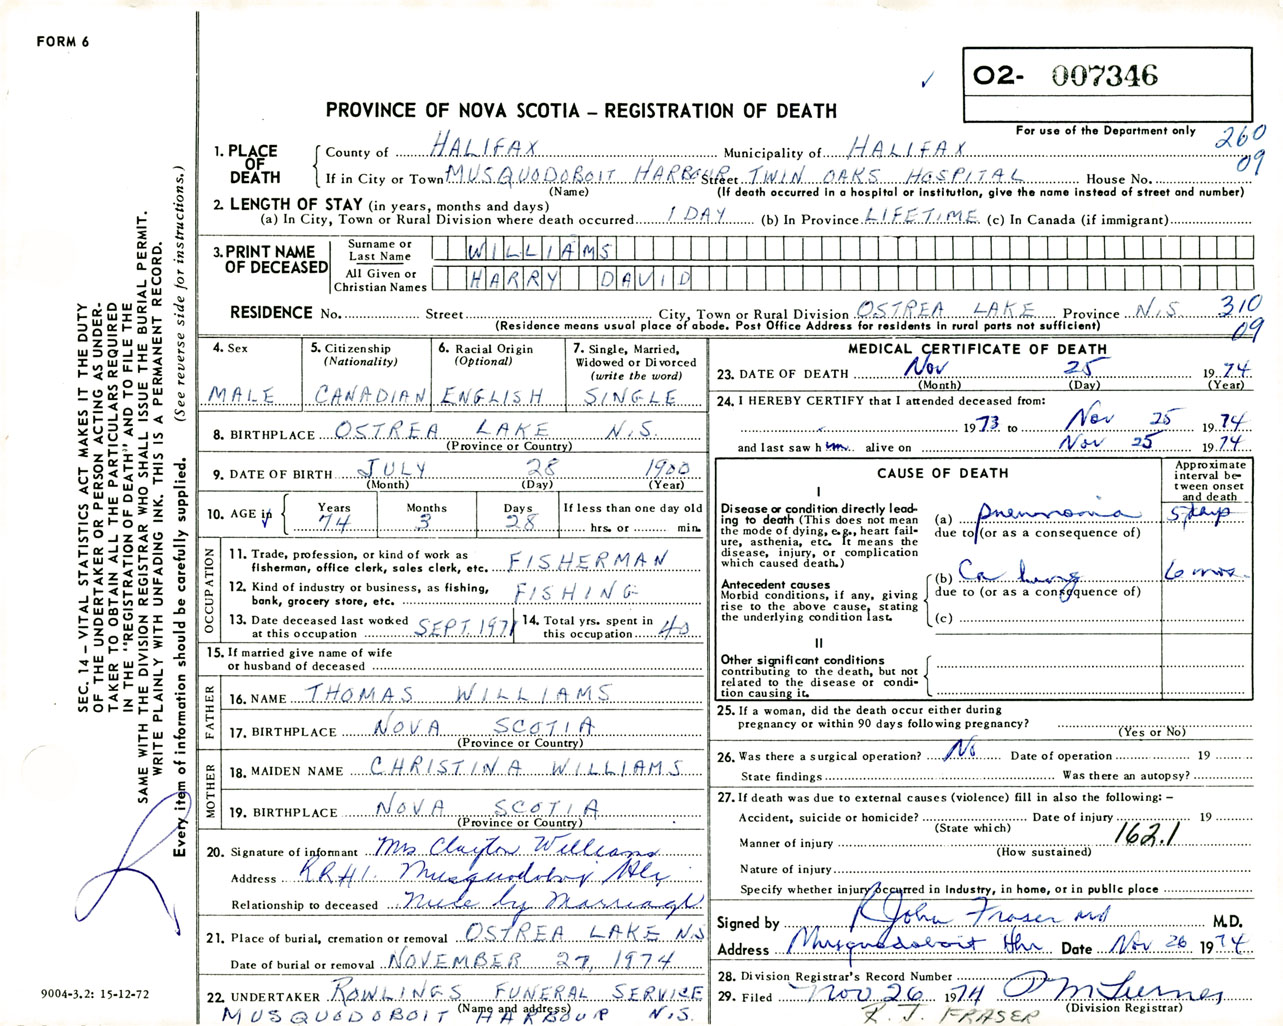 FORM 6
O2- 007346
PROVINCE OF NOVA SCOTIA – REGISTRATION OF DEATH
For use of the Department only
260
09
1. PLACE OF DEATH
County of HALIFAX Municipality of HALIFAX
If in City or Town MUSQUODOBOIT HARBOUR Street TWIN OAKS HOSPITAL House No.
(Name) (If death occurred in a hospital or institution, give the name instead of street and number)
2. LENGTH OF STAY (in years, months and days)
(a) In City, Town or Rural Division where death occurred 1 DAY (b) In Province LIFETIME (c) In Canada (if immigrant)
3. PRINT NAME OF DECEASED
Surname or Last Name WILLIAMS
All Given or Christian Names HARRY DAVID
RESIDENCE No. Street City, Town or Rural Division OSTREA LAKE Province N.S. 310
(Residence means usual place of abode. Post Office Address for residents in rural parts not sufficient) 09
4. Sex MALE
5. Citizenship (Nationality) CANADIAN
6. Racial Origin (Optional) ENGLISH
7. Single, Married, Widowed or Divorced (write the word) SINGLE
8. BIRTHPLACE OSTREA LAKE N.S.
(Province or Country)
9. DATE OF BIRTH JULY 28 1900
(Month) (Day) (Year)
10. AGE in Years 74 Months 3 Days 28 If less than one day old
hrs. or min.
OCCUPATION
11. Trade, profession, or kind of work as fisherman, office clerk, sales clerk, etc. FISHERMAN
12. Kind of industry or business, as fishing, bank, grocery store, etc. FISHING
13. Date deceased last worked at this occupation SEPT. 1971
14. Total yrs. spent in this occupation 40
15. If married give name of wife or husband of deceased
FATHER
16. NAME THOMAS WILLIAMS
17. BIRTHPLACE NOVA SCOTIA
(Province or Country)
MOTHER
18. MAIDEN NAME CHRISTINA WILLIAMS
19. BIRTHPLACE NOVA SCOTIA
(Province or Country)
20. Signature of informant Mrs Clayton Williams
Address RR#1 Musquodoboit Hbr
Relationship to deceased Niece by Marriage
21. Place of burial, cremation or removal OSTREA LAKE N.S
Date of burial or removal NOVEMBER 27, 1974
22. UNDERTAKER ROWLINGS FUNERAL SERVICE
(Name and address)
MUSQUODOBOIT HARBOUR N.S.
MEDICAL CERTIFICATE OF DEATH
23. DATE OF DEATH Nov 25 1974
(Month) (Day) (Year)
24. I HEREBY CERTIFY that I attended deceased from:
1973 to Nov 25 1974
and last saw him alive on Nov 25 1974
CAUSE OF DEATH
Approximate interval between onset and death
I
Disease or condition directly leading to death (This does not mean the mode of dying, e.g., heart failure, asthenia, etc. It means the disease, injury, or complication which caused death.)
(a) pneumonia 5 days
due to (or as a consequence of)
Antecedent causes
Morbid conditions, if any, giving rise to the above cause, stating the underlying condition last.
(b) Ca lung 6 mos.
due to (or as a consequence of)
(c)
II
Other significant conditions contributing to the death, but not related to the disease or condition causing it.
25. If a woman, did the death occur either during pregnancy or within 90 days following pregnancy?
(Yes or No)
26. Was there a surgical operation? No Date of operation 19
State findings Was there an autopsy?
27. If death was due to external causes (violence) fill in also the following: –
Accident, suicide or homicide? Date of injury 19
(State which) 162.1
Manner of injury
(How sustained)
Nature of injury
Specify whether injury occurred in Industry, in home, or in public place
Signed by R John Fraser MD M.D.
Address Musquodoboit Hbr Date Nov 26 1974
28. Division Registrar's Record Number
29. Filed Nov 26 1974
(Division Registrar)
R. J. FRASER
SEC. 14 – VITAL STATISTICS ACT MAKES IT THE DUTY
OF THE UNDERTAKER OR PERSON ACTING AS UNDER-
TAKER TO OBTAIN ALL THE PARTICULARS REQUIRED
IN THE "REGISTRATION OF DEATH" AND TO FILE THE
SAME WITH THE DIVISION REGISTRAR WHO SHALL ISSUE THE BURIAL PERMIT.
WRITE PLAINLY WITH UNFADING INK. THIS IS A PERMANENT RECORD.
Every item of information should be carefully supplied. (See reverse side for instructions.)
9004-3.2: 15-12-72